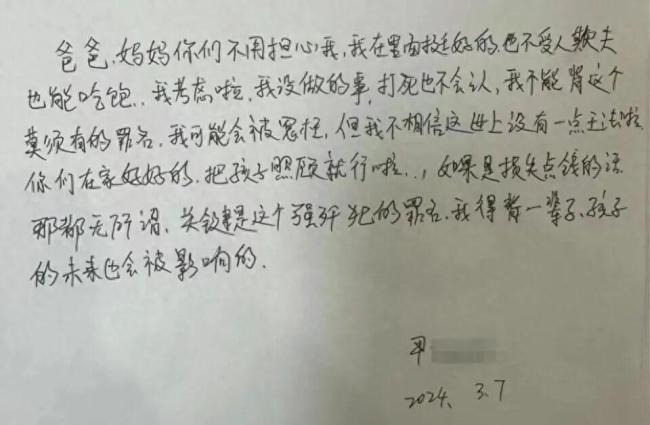 爸爸,妈妈你们不用担心我,我在里面挺好的,也不受人欺夫
也能吃饱..我考虑啦,我没做的事,打死也不会认,我不能背这个
莫须有的罪名,我可能会被冤枉,但我不相信这世上没有一点王法啦
你们在家好好的,把孩子照顾就行啦..,如果是损失点钱的话
那都无所谓,关键是这个强奸犯的罪名,我得背一辈子,孩子
的未来也会被影响的.
甲
2024. 3.7